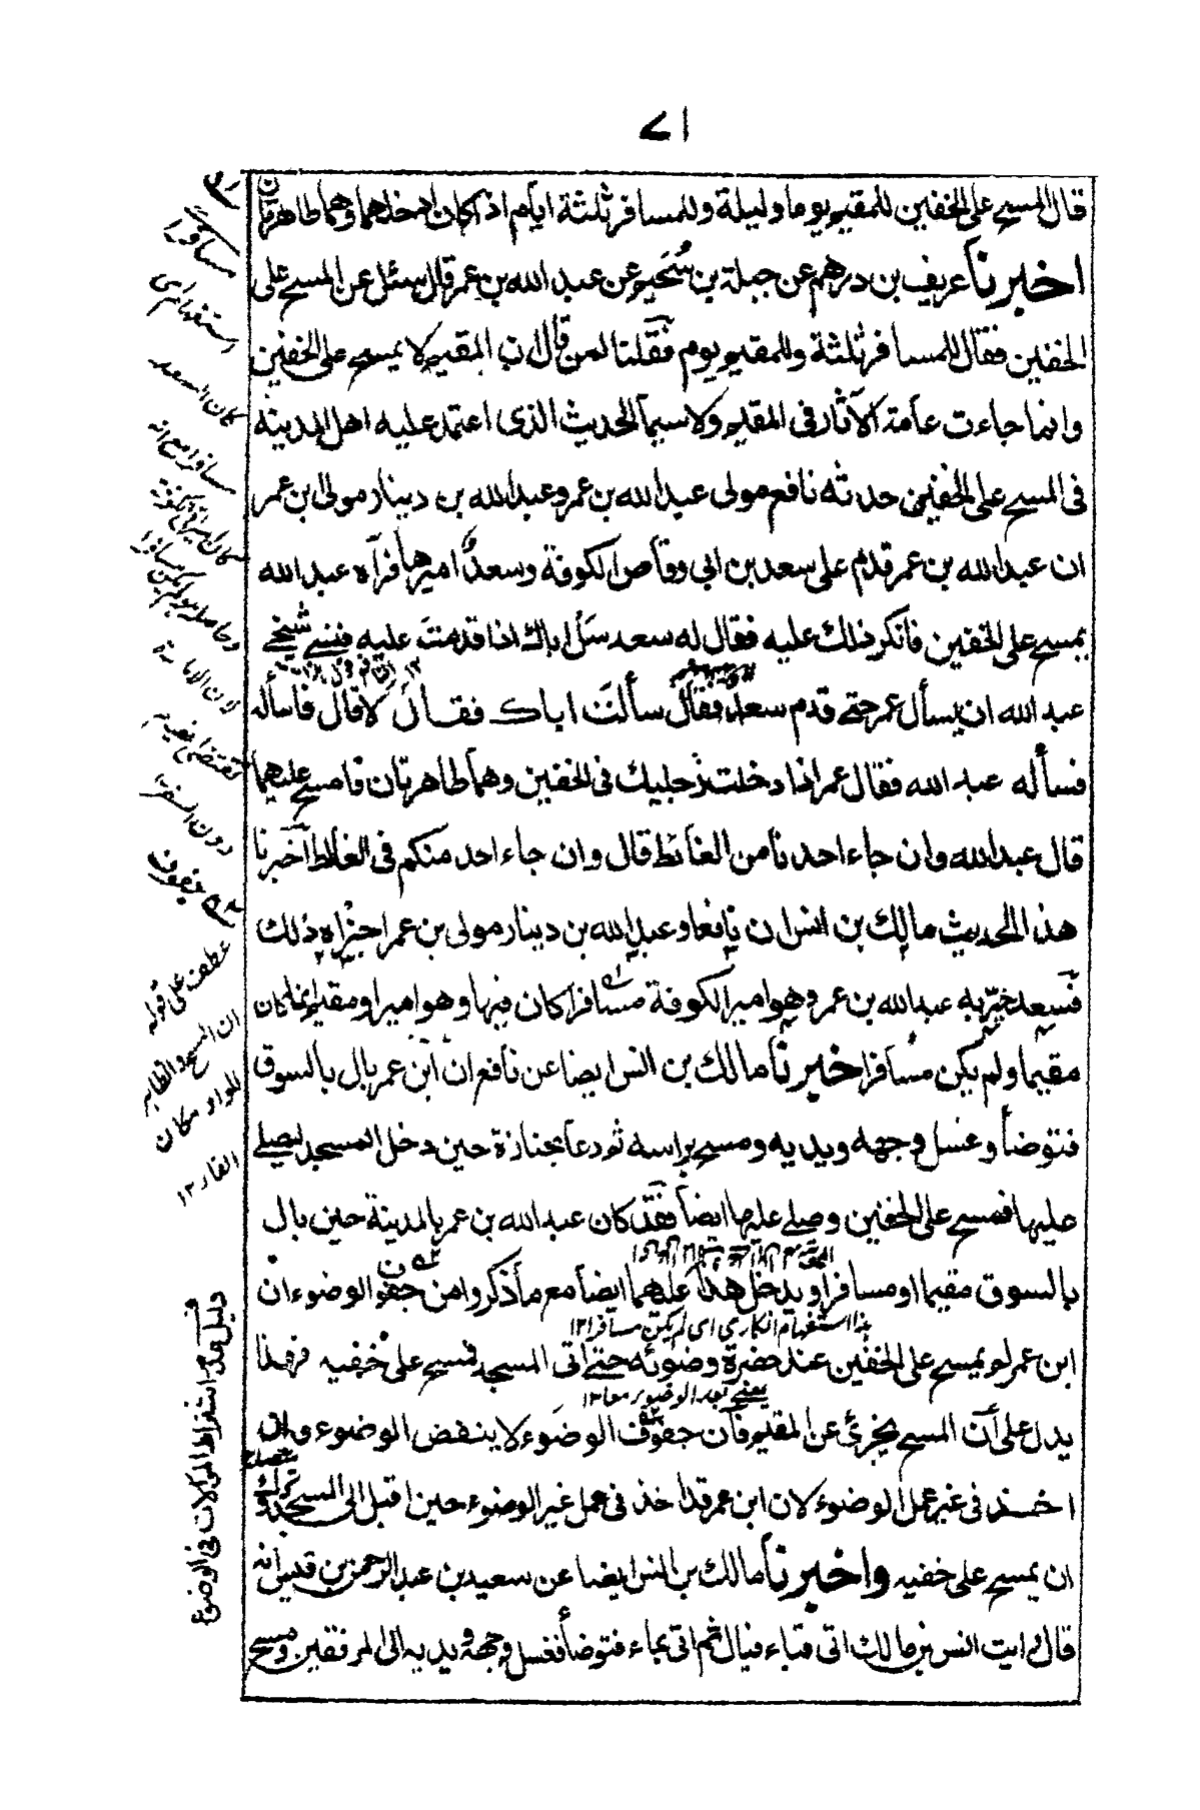 ٧١
قال المسح على الخفين للمقيم يوما وليلة وللمسافر ثلثة ايام اذا كان ادخلهما وهما طاهرتان
اخبرنا عريف بن درهم عن جبلة بن سُحَيم عن عبد الله بن عمر قال سئل عن المسح على
الخفين فقال للمسافر ثلثة وللمقيم يوم فقلنا لمن قال ان المقيم لا يمسح على الخفين
وانما جاءت عامة الآثار فى المقيم ولا سيما الحديث الذى اعتمد عليه اهل المدينة
فى المسح على الخفين حدثه نافع مولى عبد الله بن عمر وعبد الله بن دينار مولى ابن عمر
ان عبد الله بن عمر قدم على سعد بن ابى وقاص الكوفة وسعدٌ اميرها فرآه عبد الله
يمسح على الخفين فانكر ذلك عليه فقال له سعد سَل اباك اذا قدمتَ عليه فنسى
عبد الله ان يسأل عمر حتى قدم سعد فقال سألتَ اباك فقال لا قال فاسأله
فسأله عبد الله فقال عمر اذا دخلت رجليك فى الخفين وهما طاهرتان فامسح عليهما
قال عبد الله وان جاء احدنا من الغائط قال وان جاء احد منكم فى الغائط اخبرنا
هذا الحديث مالك بن انس ان نافعا وعبد الله بن دينار مولى بن عمر اخبراه ذلك
فسعد خبّر به عبد الله بن عمر وهو امير الكوفة مسافرا كان فيها وهو امير او مقيم انما كان
مقيما ولم يكن مسافرا اخبرنا مالك بن انس ايضا عن نافع ان ابن عمر بال بالسوق
فتوضأ وغسل وجهه ويديه ومسح براسه ثم دعا بجنازة حين دخل المسجد ليصلى
عليها فمسح على الخفين وصلى عليها ايضا فقد كان عبد الله بن عمر بالمدينة حين بال
بالسوق مقيما او مسافرا ويدخل هذا عليهما ايضا مع ما ذكروا من جفو الوضوء ان
بذا استفهام انكارى اى لم يكن مسافرا ١٢
ابن عمر لم يمسح على الخفين عند حضرة وضوئه حتى اتى المسجد فمسح على خفيه فهذا
يعنى بعد الوضوء
يدل على ان المسح يجزئ عن المقيم فان جفوف الوضوء لا ينقض الوضوء وان
اخذ فى غير عمل الوضوء لان ابن عمر قد اخذ فى عمل غير الوضوء حين اقبل الى المسجد
ان يمسح على خفيه واخبرنا مالك بن انس ايضا عن سعيد بن عبد الرحمن بن قيس انه
قال رايت انس بن مالك اتى قباء فبال ثم اتى بماء فتوضأ فغسل وجهه ويديه الى المرفقين ومسح
استفهام اى
كان السعد
مسافرا مع انه
كان اميرا
لان الامارة
تقتضى
دون السفر
جفوف
عطف على قوله
ان المسح والظاهر
الواو مكان
الفاء ١٢
دليل عدم اشتراط الموالات فى الوضوء